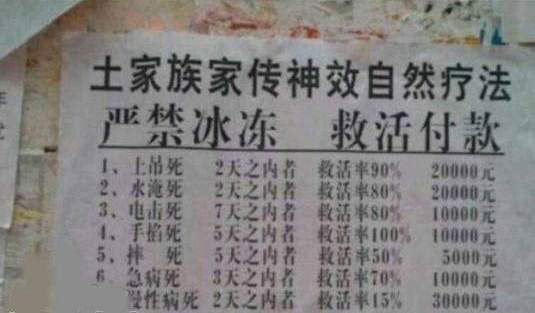 土家族家传神效自然疗法
严禁冰冻 救活付款
1、上吊死 2天之内者 救活率90% 20000元
2、水淹死 2天之内者 救活率80% 20000元
3、电击死 7天之内者 救活率80% 10000元
4、手掐死 5天之内者 救活率100% 10000元
5、摔 死 5天之内者 救活率50% 5000元
6、急病死 3天之内者 救活率70% 10000元
慢性病死 2天之内者 救活率15% 30000元